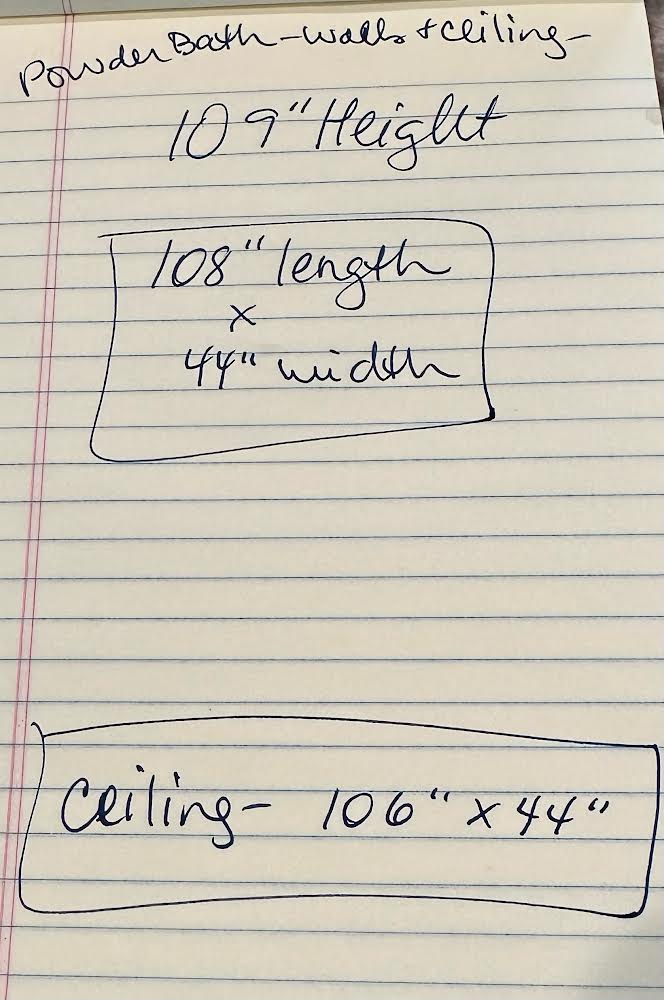 Powder Bath - walls + ceiling -
109" Height
108" length
x
44" width
Ceiling - 106" x 44"